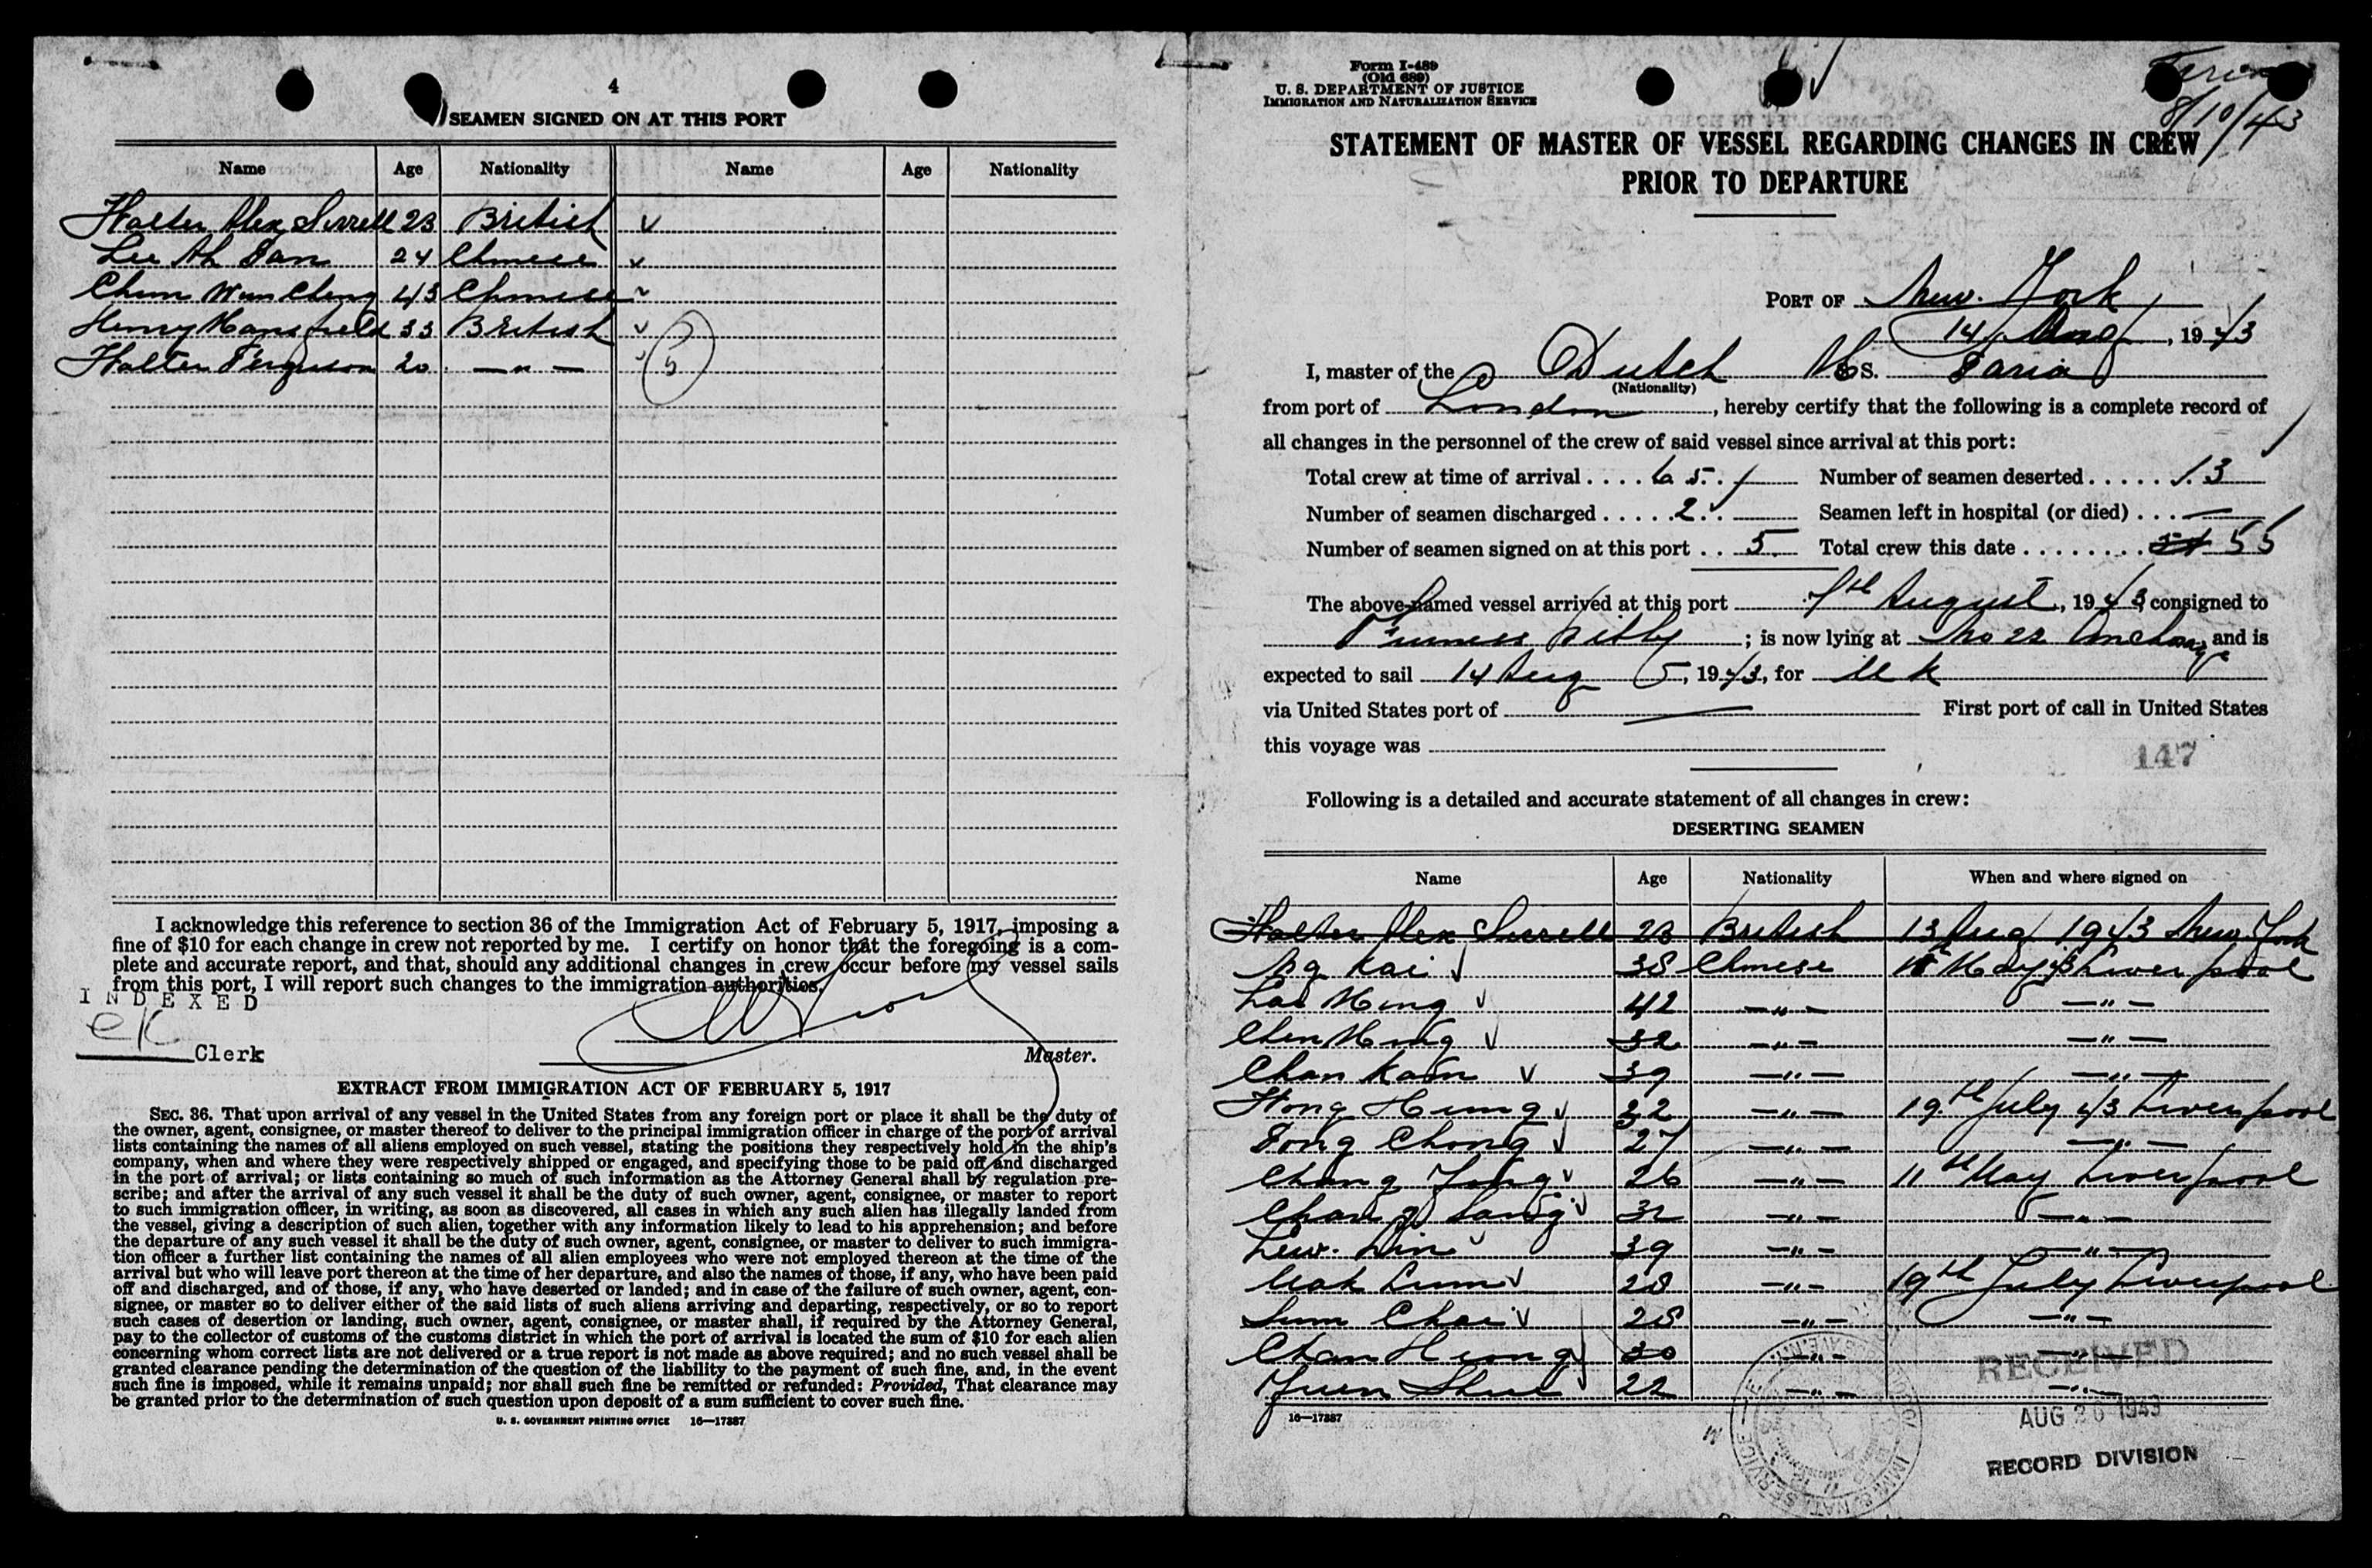 4
SEAMEN SIGNED ON AT THIS PORT
Name Age Nationality Name Age Nationality
Walter Alex Sirrell 23 British
Lee Ah San 24 Chinese
Chun Wun Ching 43 Chinese
Henry Mansfield 33 British
Walter Ferguson 20 — " —
5
I acknowledge this reference to section 36 of the Immigration Act of February 5, 1917, imposing a
fine of $10 for each change in crew not reported by me. I certify on honor that the foregoing is a com-
plete and accurate report, and that, should any additional changes in crew occur before my vessel sails
from this port, I will report such changes to the immigration authorities.
INDEXED
CK
Clerk
Master.
EXTRACT FROM IMMIGRATION ACT OF FEBRUARY 5, 1917
SEC. 36. That upon arrival of any vessel in the United States from any foreign port or place it shall be the duty of
the owner, agent, consignee, or master thereof to deliver to the principal immigration officer in charge of the port of arrival
lists containing the names of all aliens employed on such vessel, stating the positions they respectively hold in the ship's
company, when and where they were respectively shipped or engaged, and specifying those to be paid off and discharged
in the port of arrival; or lists containing so much of such information as the Attorney General shall by regulation pre-
scribe; and after the arrival of any such vessel it shall be the duty of such owner, agent, consignee, or master to report
to such immigration officer, in writing, as soon as discovered, all cases in which any such alien has illegally landed from
the vessel, giving a description of such alien, together with any information likely to lead to his apprehension; and before
the departure of any such vessel it shall be the duty of such owner, agent, consignee, or master to deliver to such immigra-
tion officer a further list containing the names of all alien employees who were not employed thereon at the time of the
arrival but who will leave port thereon at the time of her departure, and also the names of those, if any, who have been paid
off and discharged, and of those, if any, who have deserted or landed; and in case of the failure of such owner, agent, con-
signee, or master so to deliver either of the said lists of such aliens arriving and departing, respectively, or so to report
such cases of desertion or landing, such owner, agent, consignee, or master shall, if required by the Attorney General,
pay to the collector of customs of the customs district in which the port of arrival is located the sum of $10 for each alien
concerning whom correct lists are not delivered or a true report is not made as above required; and no such vessel shall be
granted clearance pending the determination of the question of the liability to the payment of such fine, and, in the event
such fine is imposed, while it remains unpaid; nor shall such fine be remitted or refunded: Provided, That clearance may
be granted prior to the determination of such question upon deposit of a sum sufficient to cover such fine.
U. S. GOVERNMENT PRINTING OFFICE 16—17387
Form I-489
(Old 689)
U. S. DEPARTMENT OF JUSTICE
IMMIGRATION AND NATURALIZATION SERVICE
8/10/43
STATEMENT OF MASTER OF VESSEL REGARDING CHANGES IN CREW
PRIOR TO DEPARTURE
PORT OF New York
14 Aug, 1943
I, master of the Dutch MS. Saria
(Nationality)
from port of London, hereby certify that the following is a complete record of
all changes in the personnel of the crew of said vessel since arrival at this port:
Total crew at time of arrival .... 65. Number of seamen deserted ..... 13
Number of seamen discharged ..... 2. Seamen left in hospital (or died) ... —
Number of seamen signed on at this port .. 5. Total crew this date ........ 55
The above-named vessel arrived at this port 7th August, 1943 consigned to
Furness Withy; is now lying at No 22 Anchorage and is
expected to sail 14 Aug, 1943, for U K
via United States port of — First port of call in United States
this voyage was
147
Following is a detailed and accurate statement of all changes in crew:
DESERTING SEAMEN
Name Age Nationality When and where signed on
Walter Alex Sirrell 23 British 13 Aug 1943 New York
Ng Kai 38 Chinese May 43 Liverpool
Lao Ming 42 — " — — " —
Chen Ming 32 — " — — " —
Chan Kam 39 — " — — " —
Wong Hung 22 — " — 19th July 43 Liverpool
Song Chong 27 — " — — " —
Chang Yong 26 — " — 11th May Liverpool
Chang Sang 32 — " — — " —
Lew. Lin 39 — " — — " —
Mak Lum 28 — " — 19th July Liverpool
Sum Chai 28 — " — — " —
Chan Heong 30 — " — — " —
Yuen Shui 22 — " — — " —
16—17387
RECEIVED
AUG 26 1943
RECORD DIVISION